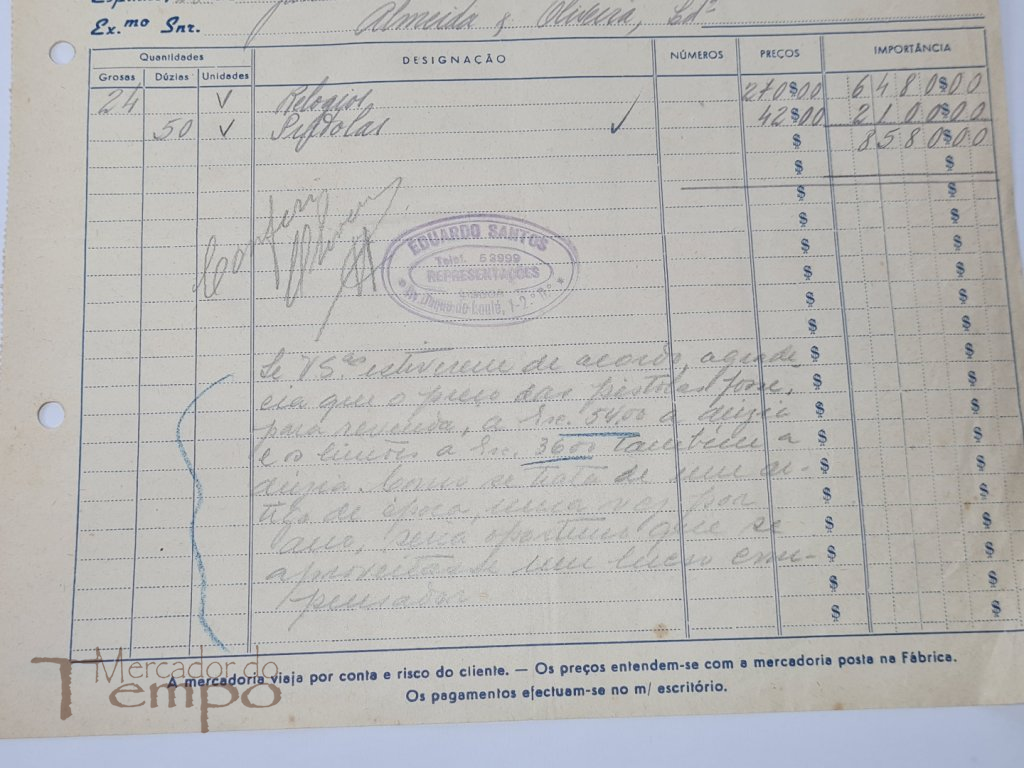 Ex.mo Snr. Almeida & Oliveira, Lda
Quantidades DESIGNAÇÃO NÚMEROS PREÇOS IMPORTÂNCIA
Grosas Dúzias Unidades
24 Relogios 270$00 6480$00
50 Pistolas 42$00 2100$00
8580$00
Conferi
EDUARDO SANTOS
Telef. 53999
REPRESENTAÇÕES
LISBOA
Av. Duque de Loulé, 1-2.º
Se VS.as estiverem de acordo, agrade
cia que o preço das pistolas fosse,
para revenda, a Esc. 54$00 a duzia
e os limões a Esc. 36$00 tambem a
duzia. Como se trata de um ar-
tigo de época, uma vez por
ano, seria oportuno que se
aproveitasse um lucro com-
pensador.
A mercadoria viaja por conta e risco do cliente. — Os preços entendem-se com a mercadoria posta na Fábrica.
Os pagamentos efectuam-se no m/ escritório.
Mercador do
Tempo